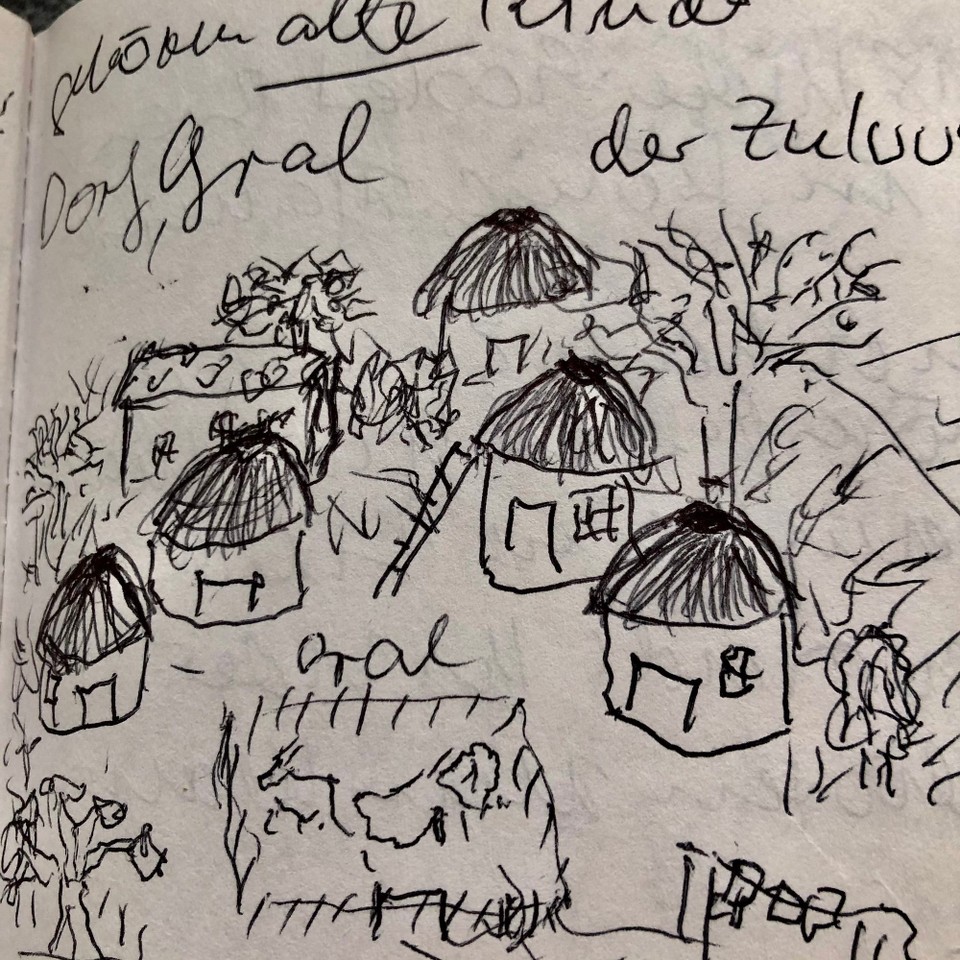 alte
Dorf, Gral der Zuluu
gral